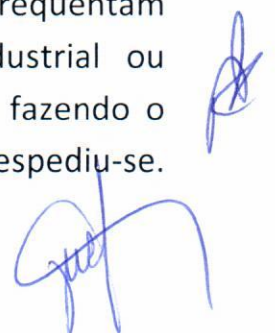 requentam
dustrial ou
fazendo o
espediu-se.